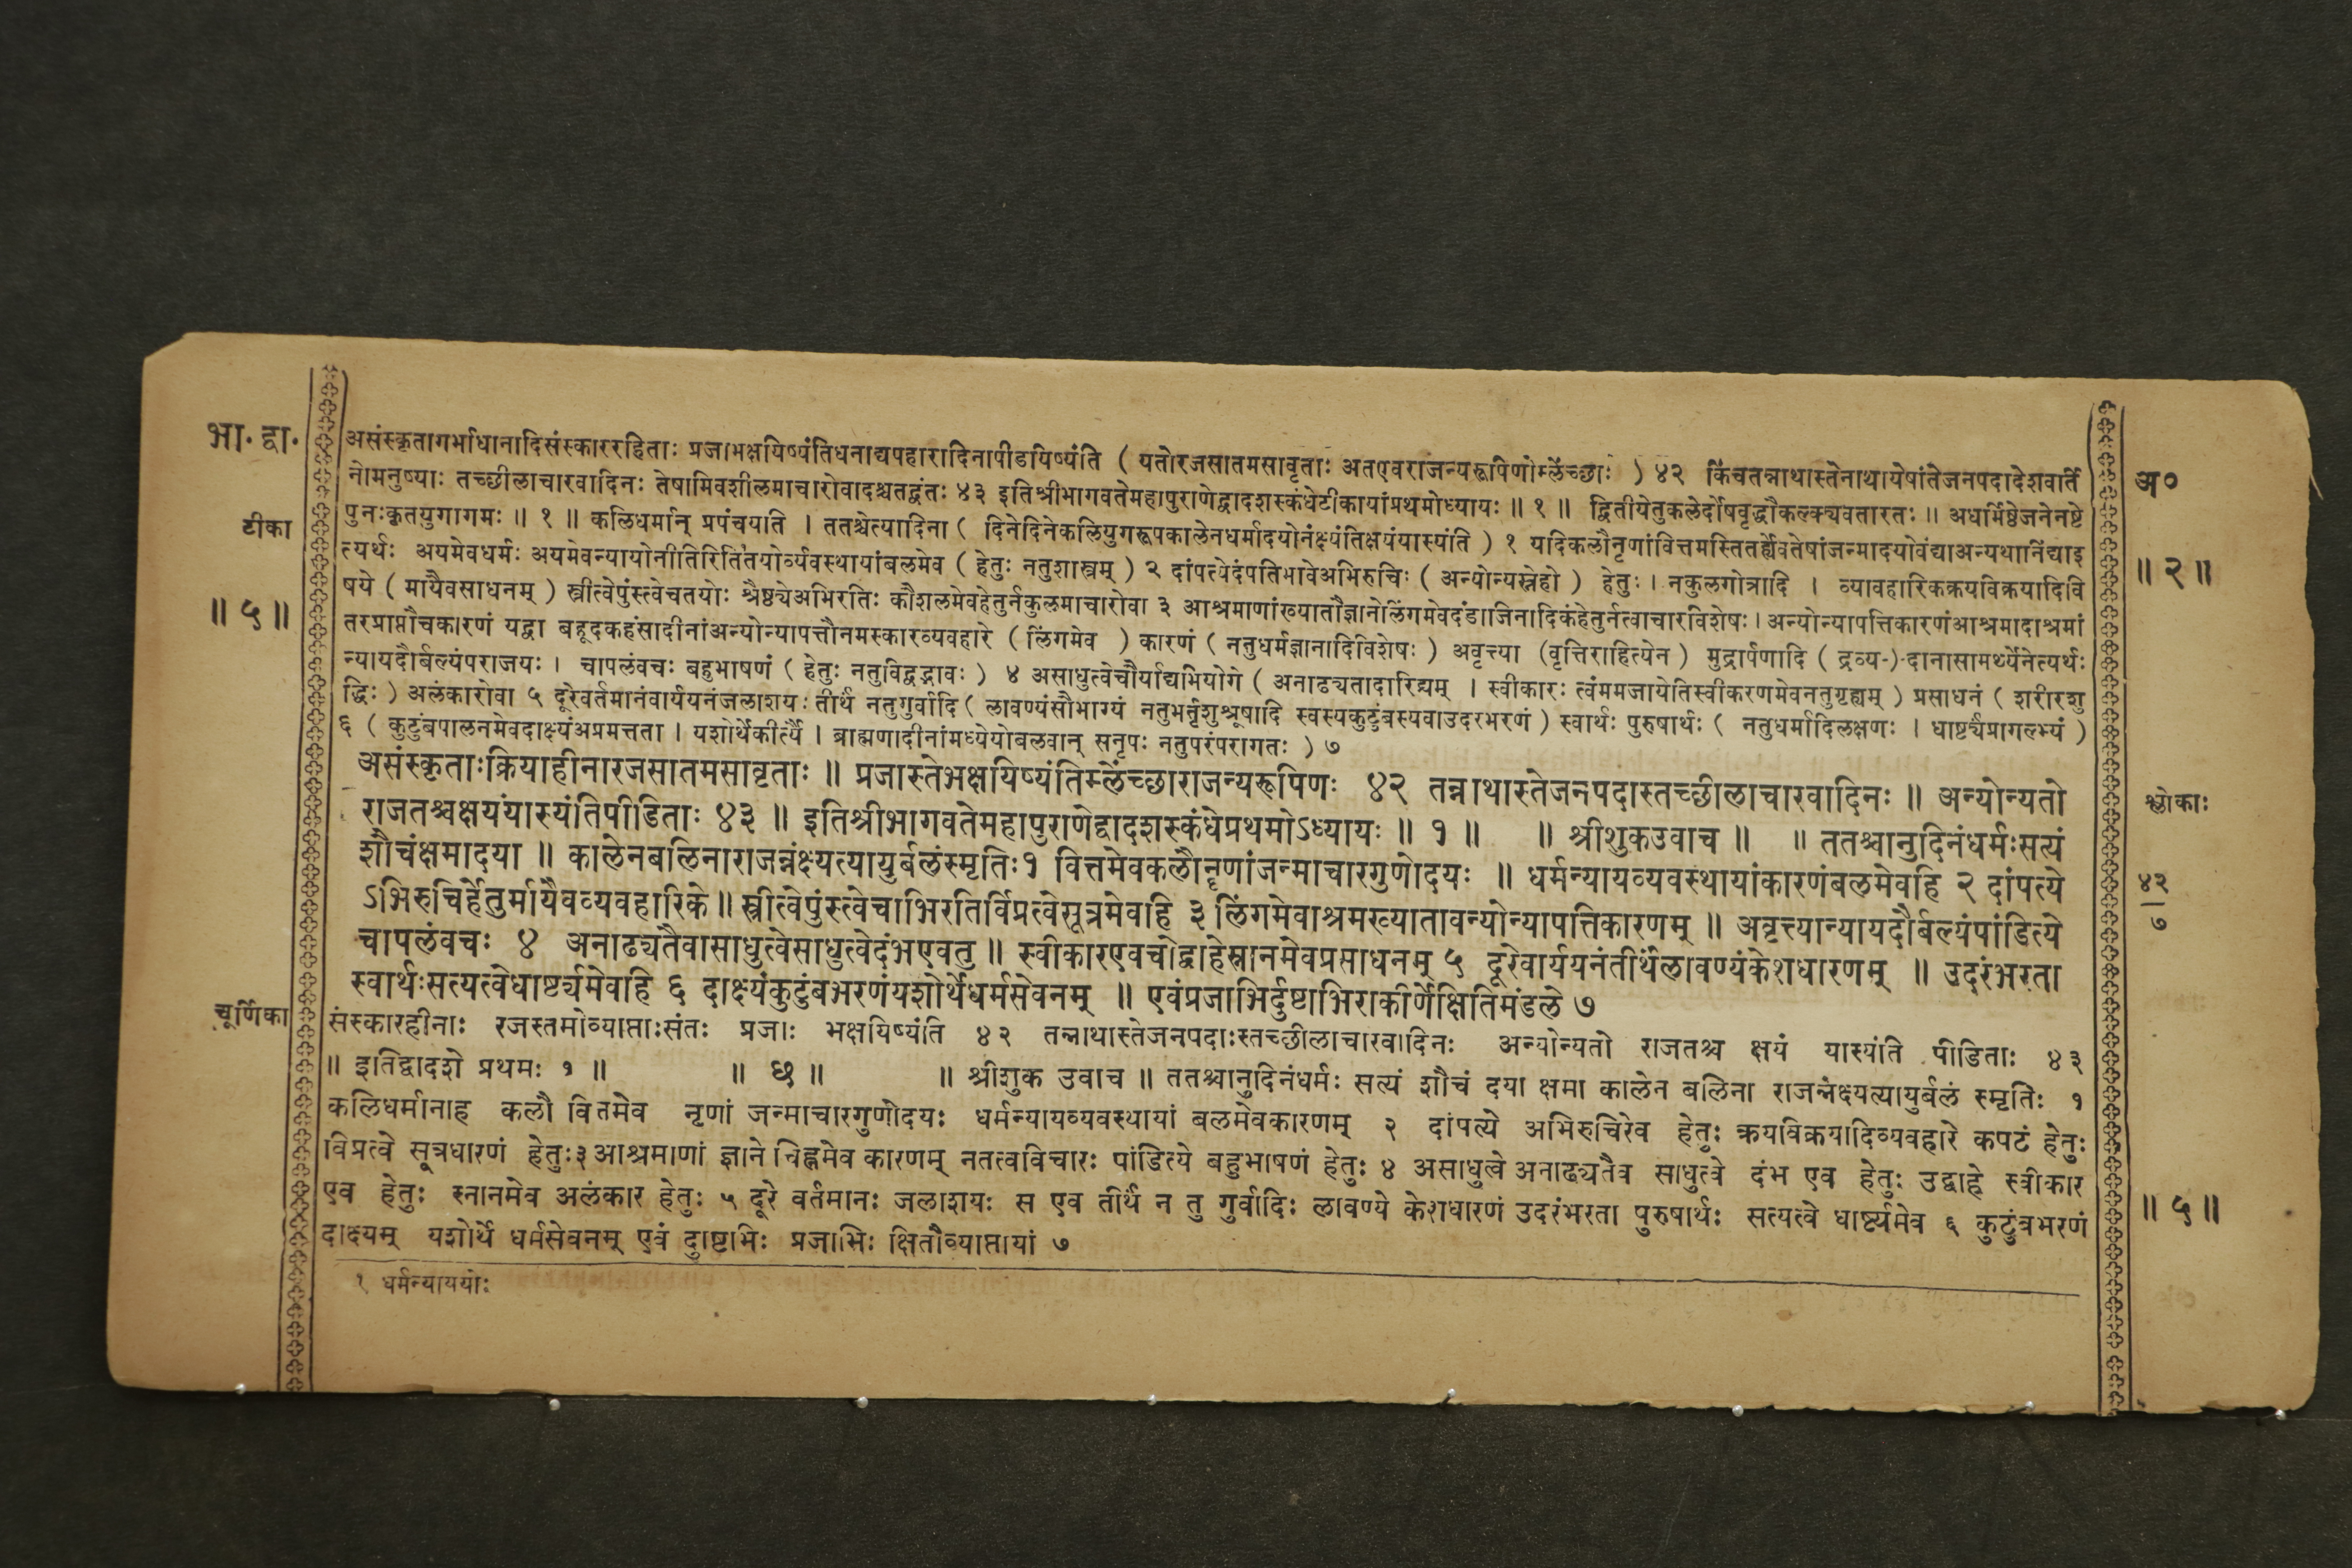 भा. द्वा.
असंस्कृतागर्भाधानादिसंस्काररहिताः प्रजाभक्षयिष्यंतिधनाद्यपहारादिनापीडयिष्यंति ( यतोरजसातमसावृताः अतएवराजन्यरूपिणोम्लेच्छाः ) ४२ किंचतन्नाथास्तेनाथायेषांतेजनपदादेशवर्ति
अ०
नोमनुष्याः तच्छीलाचारवादिनः तेषामिवशीलमाचारोवादश्चतद्वंतः ४३ इतिश्रीभागवतेमहापुराणेद्वादशस्कंधेटीकायांप्रथमोध्यायः ॥ १ ॥ द्वितीयेतुकलेर्दोषवृद्धौकल्क्यवतारतः ॥ अधर्मिष्ठेजनेनष्टे
टीका
पुनःकृतयुगागमः ॥ १ ॥ कलिधर्मान् प्रपंचयति । ततश्चेत्यादिना ( दिनेदिनेकलियुगरूपकालेनधर्मादयोनंक्ष्यंतिक्षयंयास्यंति ) १ यदिकलौनृणांवित्तमस्तितर्ह्येवतेषांजन्मादयोवंद्याअन्यथानिंद्याइ
॥ २ ॥
त्यर्थः अयमेवधर्मः अयमेवन्यायोनीतिरितितयोर्व्यवस्थायांबलमेव ( हेतुः नतुशास्त्रम् ) २ दांपत्येदंपतिभावेअभिरुचिः ( अन्योन्यस्नेहो ) हेतुः । नकुलगोत्रादि । व्यावहारिकक्रयविक्रयादिवि
॥ ५ ॥
षये ( मायैवसाधनम् ) स्त्रीत्वेपुंस्त्वेचतयोः श्रैष्ठ्येअभिरतिः कौशलमेवहेतुर्नकुलमाचारोवा ३ आश्रमाणांख्यातौज्ञानेलिंगमेवदंडाजिनादिकंहेतुर्नत्वाचारविशेषः । अन्योन्यापत्तिकारणंआश्रमादाश्रमां
तरप्राप्तौचकारणं यद्वा बहूदकहंसादीनांअन्योन्यापत्तौनमस्कारव्यवहारे ( लिंगमेव ) कारणं ( नतुधर्मज्ञानादिविशेषः ) अवृत्त्या (वृत्तिराहित्येन ) मुद्रार्पणादि ( द्रव्य-)-दानासामर्थ्येनेत्यर्थः
न्यायदौर्बल्यंपराजयः । चापलंवचः बहुभाषणं ( हेतुः नतुविद्वद्भावः ) ४ असाधुत्वेचौर्याद्यभियोगे ( अनाढ्यतादारिद्र्यम् । स्वीकारः त्वंममजायेतिस्वीकरणमेवनतुगृह्यम् ) प्रसाधनं ( शरीरशु
द्धिः ) अलंकारोवा ५ दूरेवर्तमानंवार्ययनंजलाशयः तीर्थं नतुगुर्वादि ( लावण्यंसौभाग्यं नतुभर्तृशुश्रूषादि स्वस्यकुटुंबस्यवाउदरभरणं ) स्वार्थः पुरुषार्थः ( नतुधर्मादिलक्षणः । धार्ष्ट्यंप्रागल्भ्यं )
६ ( कुटुंबपालनमेवदाक्ष्यंअप्रमत्तता । यशोर्थेकीर्त्यै । ब्राह्मणादीनांमध्येयोबलवान् सनृपः नतुपरंपरागतः ) ७
असंस्कृताःक्रियाहीनारजसातमसावृताः ॥ प्रजास्तेभक्षयिष्यंतिम्लेंच्छाराजन्यरूपिणः ४२ तन्नाथास्तेजनपदास्तच्छीलाचारवादिनः ॥ अन्योन्यतो
श्लोकाः
राजतश्चक्षयंयास्यंतिपीडिताः ४३ ॥ इतिश्रीभागवतेमहापुराणेद्वादशस्कंधेप्रथमोऽध्यायः ॥ १ ॥ ॥ श्रीशुकउवाच ॥ ॥ ततश्चानुदिनंधर्मःसत्यं
शौचंक्षमादया ॥ कालेनबलिनाराजन्नंक्ष्यत्यायुर्बलंस्मृतिः१ वित्तमेवकलौनॄणांजन्माचारगुणोदयः ॥ धर्मन्यायव्यवस्थायांकारणंबलमेवहि २ दांपत्ये
४३
७
ऽभिरुचिर्हेतुर्मायैवव्यवहारिके ॥ स्त्रीत्वेपुंस्त्वेचाभिरतिर्विप्रत्वेसूत्रमेवहि ३ लिंगमेवाश्रमख्यातावन्योन्यापत्तिकारणम् ॥ अवृत्त्यान्यायदौर्बल्यंपांडित्ये
चापलंवचः ४ अनाढ्यतैवासाधुत्वेसाधुत्वेदंभएवतु ॥ स्वीकारएवचोद्वाहेस्नानमेवप्रसाधनम् ५ दूरेवार्ययनंतीर्थंलावण्यंकेशधारणम् ॥ उदरंभरता
स्वार्थःसत्यत्वेधार्ष्ट्यमेवहि ६ दाक्ष्यंकुटुंबभरणंयशोर्थेधर्मसेवनम् ॥ एवंप्रजाभिर्दुष्टाभिराकीर्णेक्षितिमंडले ७
चूर्णिका
संस्कारहीनाः रजस्तमोव्याप्ताःसंतः प्रजाः भक्षयिष्यंति ४२ तन्नाथास्तेजनपदाःस्तच्छीलाचारवादिनः अन्योन्यतो राजतश्च क्षयं यास्यंति पीडिताः ४३
॥ इतिद्वादशे प्रथमः १ ॥ ॥ छ ॥ ॥ श्रीशुक उवाच ॥ ततश्चानुदिनंधर्मः सत्यं शौचं दया क्षमा कालेन बलिना राजन्नंक्ष्यत्यायुर्बलं स्मृतिः १
कलिधर्मानाह कलौ वितमेव नृणां जन्माचारगुणोदयः धर्मन्यायव्यवस्थायां बलमेवकारणम् २ दांपत्ये अभिरुचिरेव हेतुः क्रयविक्रयादिव्यवहारे कपटं हेतुः
विप्रत्वे सूत्रधारणं हेतुः३ आश्रमाणां ज्ञाने चिह्नमेव कारणम् नतत्वविचारः पांडित्ये बहुभाषणं हेतुः ४ असाधुत्वे अनाढ्यतैव साधुत्वे दंभ एव हेतुः उद्वाहे स्वीकार
एव हेतुः स्नानमेव अलंकार हेतुः ५ दूरे वर्तमानः जलाशयः स एव तीर्थं न तु गुर्वादिः लावण्ये केशधारणं उदरंभरता पुरुषार्थः सत्यत्वे धार्ष्ट्यमेव ६ कुटुंबभरणं
॥ ५ ॥
दाक्ष्यम् यशोर्थे धर्मसेवनम् एवं दुाष्टाभिः प्रजाभिः क्षितौव्याप्तायां ७
१ धर्मन्याययोः